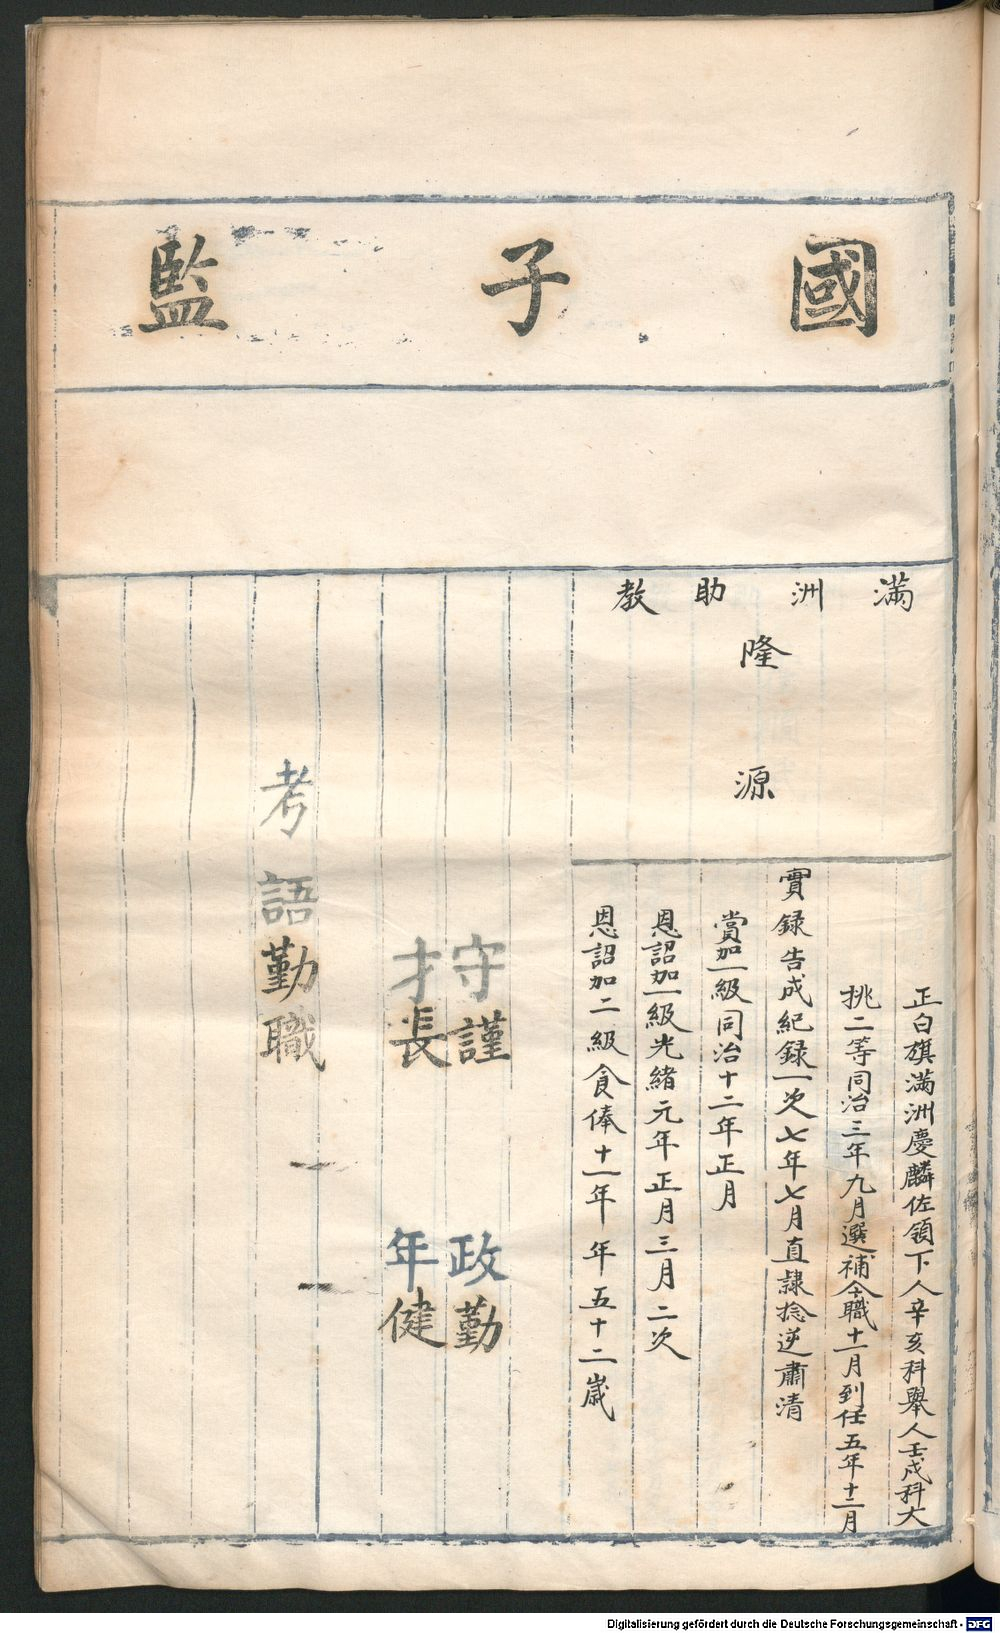 國子監
滿洲助教
隆源
正白旗滿洲慶麟佐領下人辛亥科舉人壬戌科大
挑二等同治三年九月選補今職十一月到任五年十二月
實録告成紀録一次七年七月直隸捻逆肅清
賞加一級同治十二年正月
恩詔加一級光緒元年正月三月二次
恩詔加二級食俸十一年年五十二歲
守謹政勤
才長年健
考語勤職
Digitalisierung gefördert durch die Deutsche Forschungsgemeinschaft - DFG